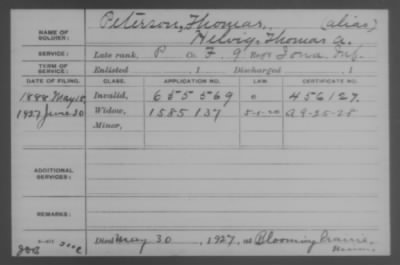 Peterson, Thomas. (alias)
NAME OF SOLDIER: Helvig, Thomas A.
SERVICE: Late rank, P Co. F, 9 Reg't Iowa Inf.
TERM OF SERVICE: Enlisted , 1 Discharged , 1
DATE OF FILING. CLASS. APPLICATION NO. LAW. CERTIFICATE NO.
1888 May Invalid, 655 569 456127.
1927 June 30 Widow, 1585137 5-1-20 A 9-25-28
Minor,
ADDITIONAL SERVICES:
REMARKS:
Died May 30 , 1927, at Blooming Prairie,
Minn.